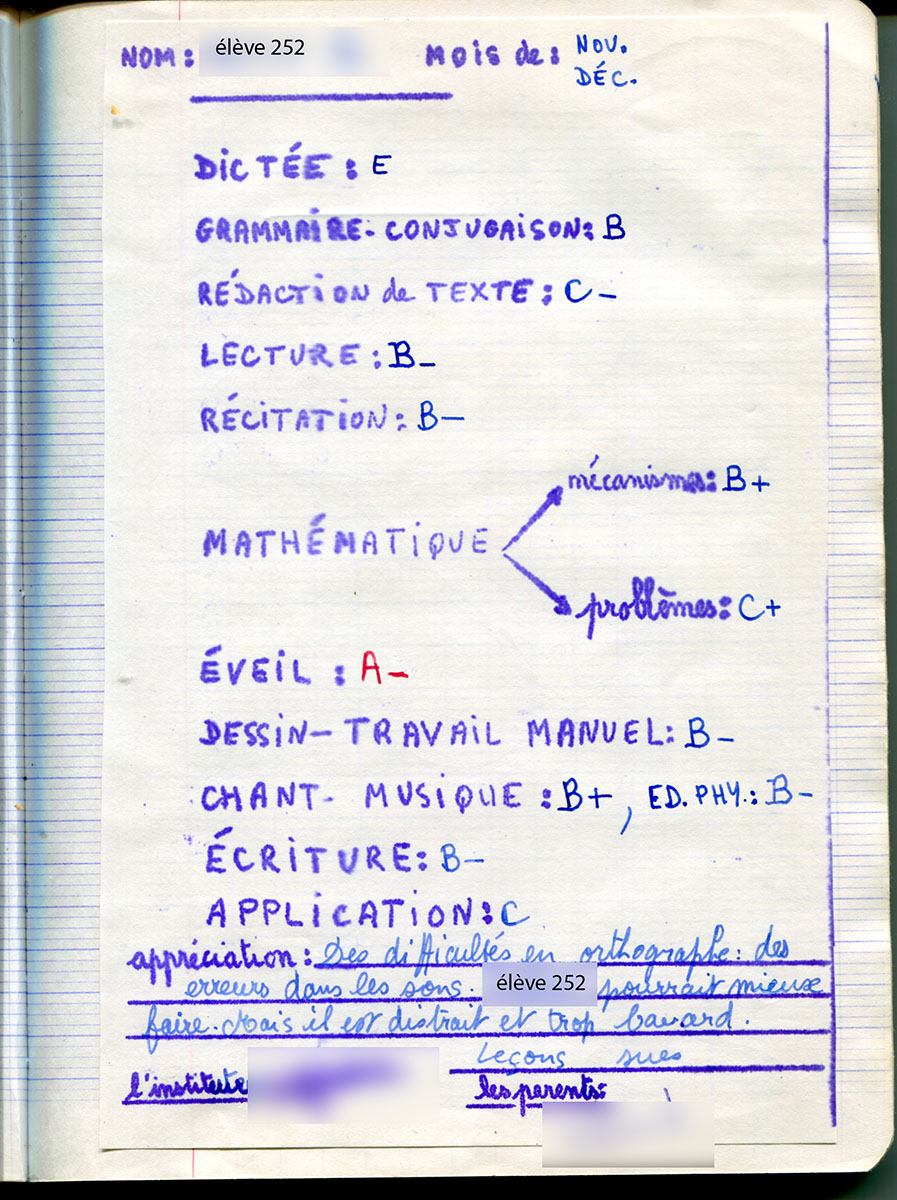 NOM: élève 252 MOIS de: NOV.
DÉC.
DICTÉE: E
GRAMMAIRE-CONJUGAISON: B
RÉDACTION de TEXTE: C-
LECTURE: B-
RÉCITATION: B-
mécanismes: B+
MATHÉMATIQUE
problèmes: C+
ÉVEIL: A-
DESSIN-TRAVAIL MANUEL: B-
CHANT-MUSIQUE: B+, ED. PHY.: B-
ÉCRITURE: B-
APPLICATION: C
appréciation: Des difficultés en orthographe: des
erreurs dans les sons. élève 252 pourrait mieux
faire. Mais il est distrait et trop bavard.
Leçons sues
les parents: